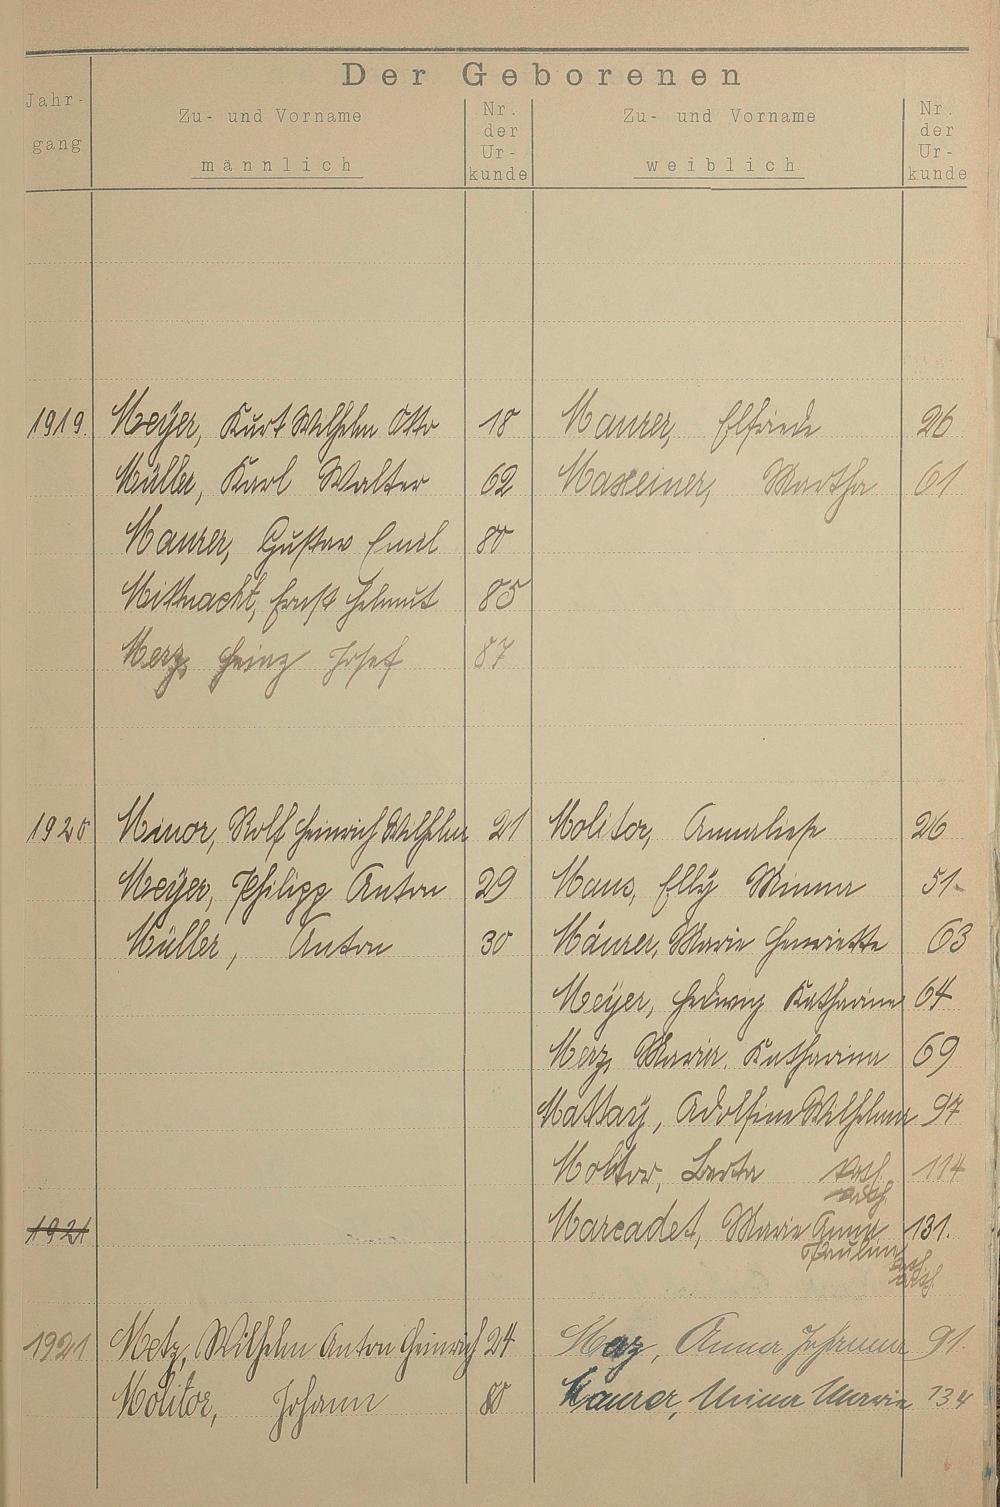 Der Geborenen
Jahr-
gang
Zu- und Vorname
männlich
Nr.
der
Ur-
kunde
Zu- und Vorname
weiblich
Nr.
der
Ur-
kunde
1919. Meyer, Kurt Wilhelm Otto 18 Maurer, Elfriede 26
Müller, Karl Walter 62 Maxeiner, Martha 61
Maurer, Gustav Emil 80
Mittnacht, Ernst Helmut 85
Merz, Heinz Josef 87
1920 Minor, Rolf Heinrich Wilhelm 21 Molitor, Anneliese 26
Meyer, Philipp Anton 29 Maus, Elly Minna 51
Müller, Anton 30 Mäurer, Marie Henriette 63
Meyer, Hedwig Katharina 64
Merz, Maria Katharina 69
Mattay, Adolfine Wilhelmine 97
Molitor, Berta 114
1921 Marcadet, Marie Anna 131.
Pauline
1921 Metz, Wilhelm Anton Heinrich 24 Merz, Anna Johanna 91.
Molitor, Johann 80 Maurer, Minna Marie 134